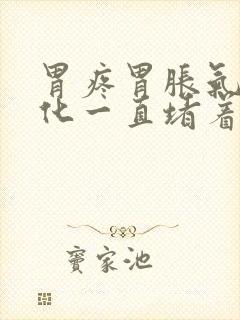 胃疼胃胀氣
化一直堵着
竇家池